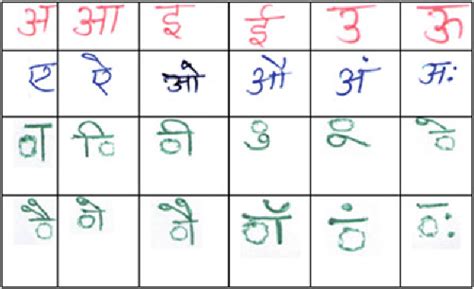 अ आ इ ई उ ऊ
ए ऐ ओ औ अं अः
◌ा ◌ि ◌ी ◌ु ◌ू ◌े
◌ै ◌ो ◌ौ ◌ॉ ◌ं ◌ः